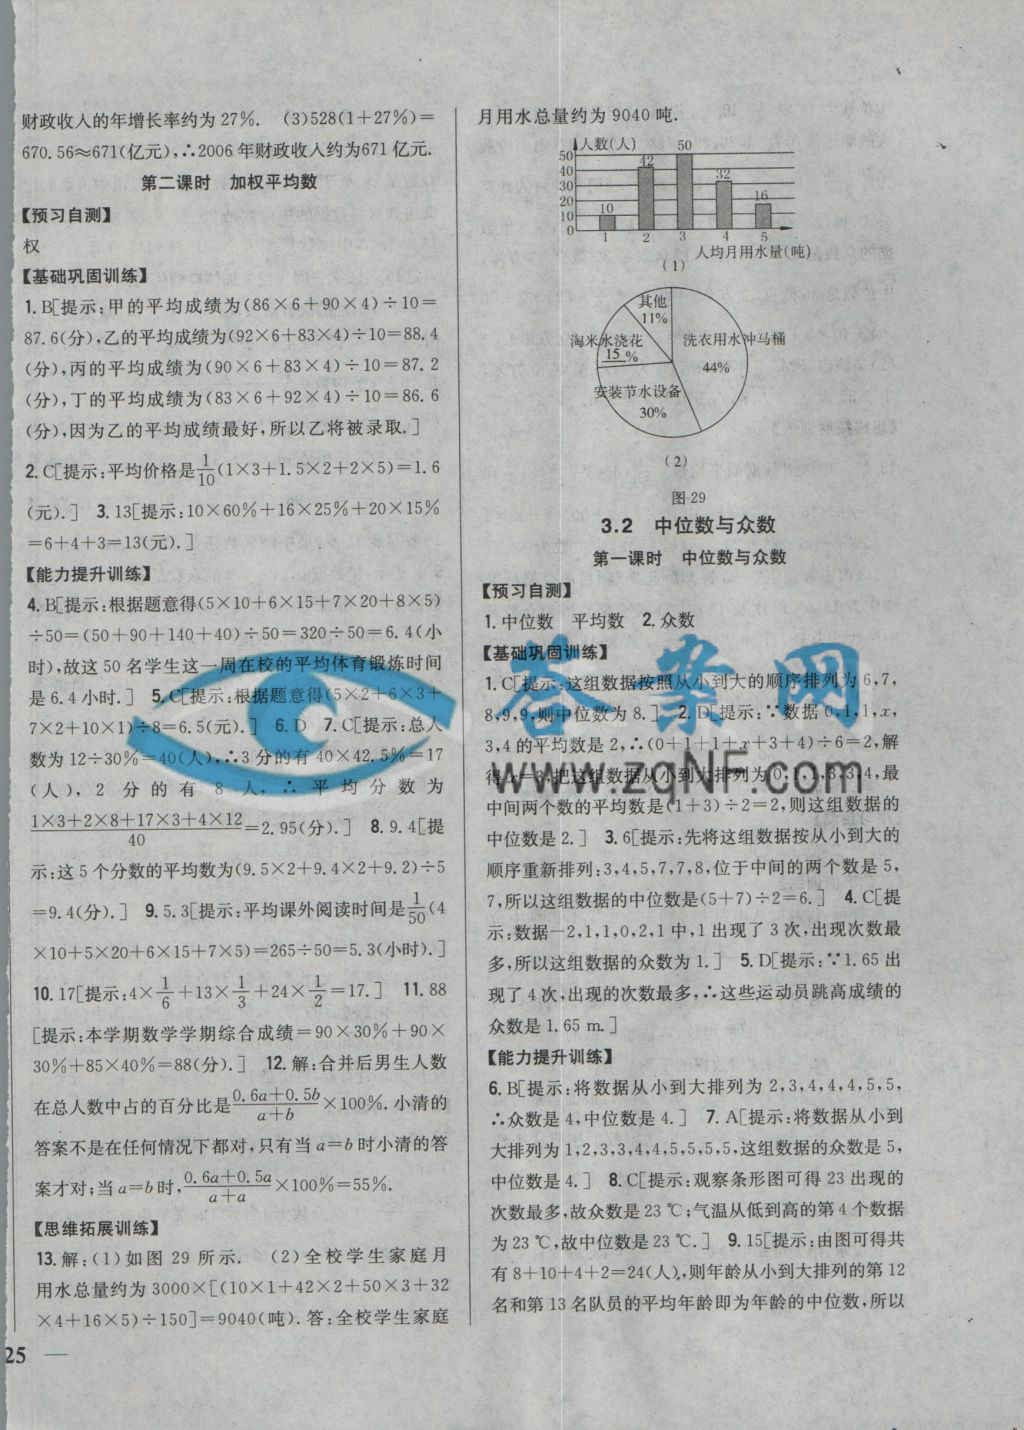 财政收入的年增长率约为27%. (3)528(1+27%)=
670.56≈671(亿元),∴2006年财政收入约为671亿元.
第二课时 加权平均数
【预习自测】
权
【基础巩固训练】
1.B[提示:甲的平均成绩为(86×6+90×4)÷10=
87.6(分),乙的平均成绩为(92×6+83×4)÷10=88.4
(分),丙的平均成绩为(90×6+83×4)÷10=87.2
(分),丁的平均成绩为(83×6+92×4)÷10=86.6
(分),因为乙的平均成绩最好,所以乙将被录取.]
2.C[提示:平均价格是1/10(1×3+1.5×2+2×5)=1.6
(元).] 3.13[提示:10×60%+16×25%+20×15%
=6+4+3=13(元).]
【能力提升训练】
4.B[提示:根据题意得(5×10+6×15+7×20+8×5)
÷50=(50+90+140+40)÷50=320÷50=6.4(小
时),故这50名学生这一周在校的平均体育锻炼时间
是6.4小时.] 5.C[提示:根据题意得(5×2+6×3+
7×2+10×1)÷8=6.5(元).] 6.D 7.C[提示:总人
数为12÷30%=40(人),∴3分的有40×42.5%=17
(人),2分的有8人,∴平均分数为
(1×3+2×8+17×3+4×12)/40=2.95(分).] 8.9.4[提
示:这5个分数的平均数为(9.5×2+9.4×2+9.2)÷5
=9.4(分).] 9.5.3[提示:平均课外阅读时间是1/50(4
×10+5×20+6×15+7×5)=265÷50=5.3(小时).]
10.17[提示:4×1/6+13×1/3+24×1/2=17.] 11.88
[提示:本学期数学学期综合成绩=90×30%+90×
30%+85×40%=88(分).] 12.解:合并后男生人数
在总人数中占的百分比是(0.6a+0.5b)/(a+b)×100%.小清的
答案不是在任何情况下都对,只有当a=b时小清的答
案才对;当a=b时,(0.6a+0.5a)/(a+a)×100%=55%.
【思维拓展训练】
13.解:(1)如图29所示. (2)全校学生家庭月
用水总量约为3000×[(10×1+42×2+50×3+32
×4+16×5)÷150]=9040(吨).答:全校学生家庭
25
月用水总量约为9040吨.
人数(人)
50
40
30
20
10
0
10
42
50
32
16
1 2 3 4 5
人均月用水量(吨)
(1)
其他
11%
淘米水浇花
15%
洗衣用水冲马桶
44%
安装节水设备
30%
(2)
图29
3.2 中位数与众数
第一课时 中位数与众数
【预习自测】
1.中位数 平均数 2.众数
【基础巩固训练】
1.C[提示:这组数据按照从小到大的顺序排列为6,7,
8,9,9,则中位数为8.] 2.D[提示:∵数据0,1,1,x,
3,4的平均数是2,∴(0+1+1+x+3+4)÷6=2,解
得x=3,把这组数据从小到大排列为0,1,1,3,3,4,最
中间两个数的平均数是(1+3)÷2=2,则这组数据的
中位数是2.] 3.6[提示:先将这组数据按从小到大的
顺序重新排列:3,4,5,7,7,8,位于中间的两个数是5,
7,所以这组数据的中位数是(5+7)÷2=6.] 4.C[提
示:数据-2,1,1,0,2,1中,1出现了3次,出现次数最
多,所以这组数据的众数为1.] 5.D[提示:∵1.65出
现了4次,出现的次数最多,∴这些运动员跳高成绩的
众数是1.65 m.]
【能力提升训练】
6.B[提示:将数据从小到大排列为2,3,4,4,4,5,5,
∴众数是4,中位数是4.] 7.A[提示:将数据从小到
大排列为1,2,3,3,4,4,5,5,5,5,这组数据的众数是5,
中位数是4.] 8.C[提示:观察条形图可得23出现的
次数最多,故众数是23℃;气温从低到高的第4个数据
为23℃,故中位数是23℃.] 9.15[提示:由图可得共
有8+10+4+2=24(人),则年龄从小到大排列的第12
名和第13名队员的平均年龄即为年龄的中位数,所以
答案网
www.zqNF.com